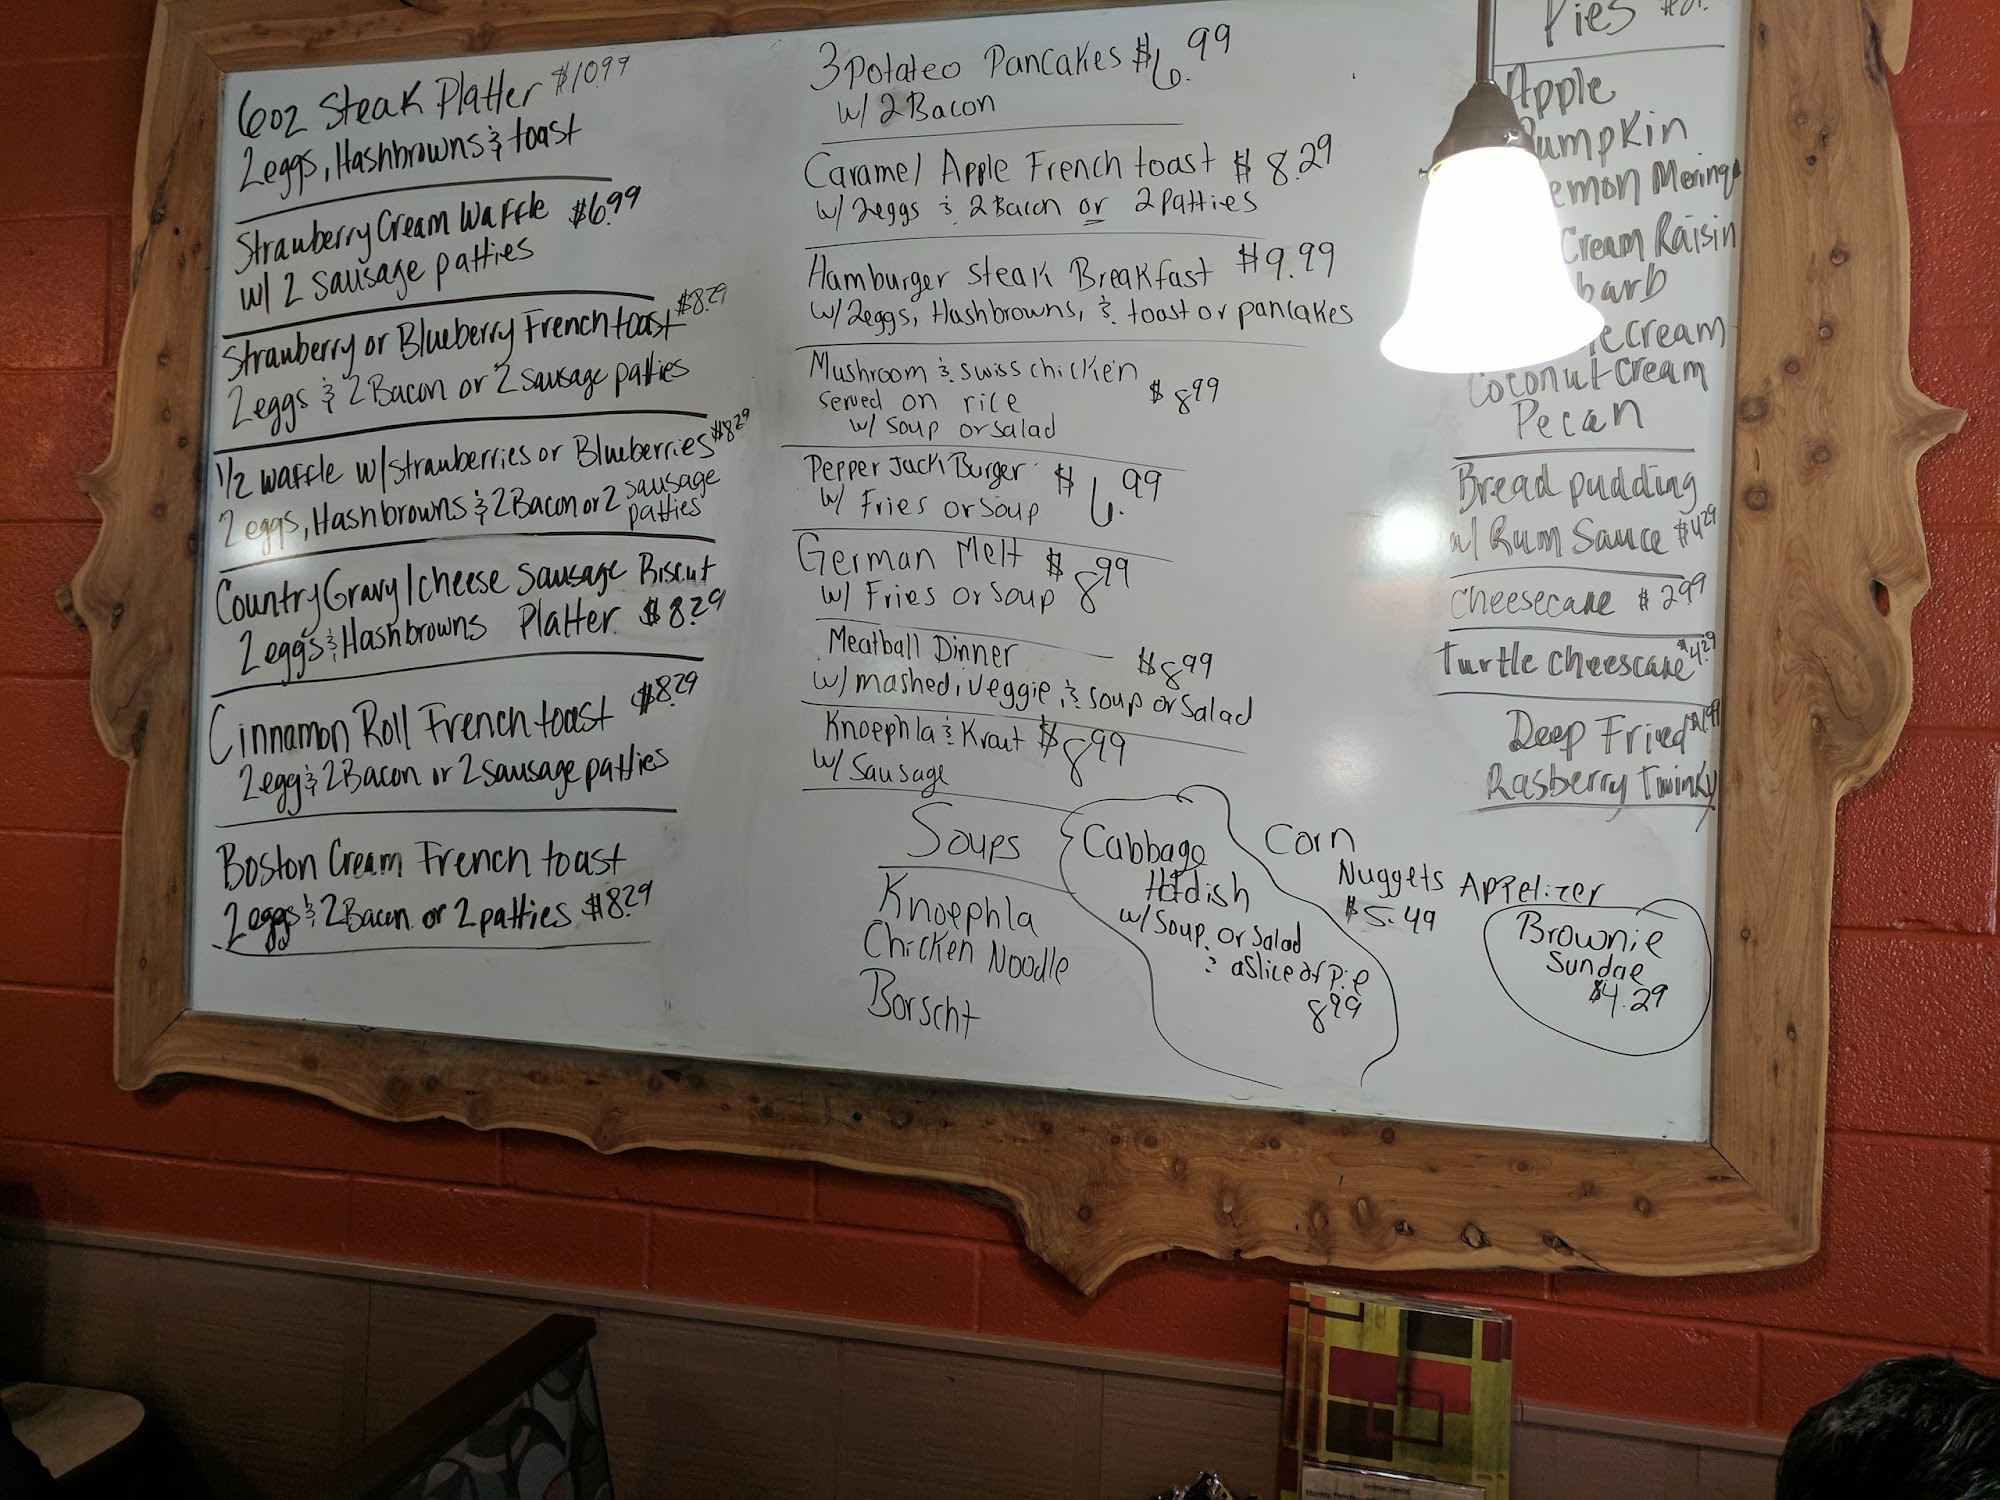 6oz Steak Platter $10.99
2 eggs, Hashbrowns & toast
Strawberry Cream Waffle $6.99
w/ 2 sausage patties
Strawberry or Blueberry French toast $8.29
2 eggs & 2 Bacon or 2 sausage patties
1/2 waffle w/ strawberries or Blueberries $8.29
2 eggs, Hashbrowns & 2 Bacon or 2 sausage
patties
Country Gravy / cheese Sausage Biscut
2 eggs & Hashbrowns Platter $8.29
Cinnamon Roll French toast $8.29
2 egg & 2 Bacon or 2 sausage patties
Boston Cream French toast
2 eggs & 2 Bacon or 2 patties $8.29
3 Potateo Pancakes $6.99
w/ 2 Bacon
Caramel Apple French toast $8.29
w/ 2 eggs & 2 Bacon or 2 Patties
Hamburger steak Breakfast $9.99
w/ 2 eggs, Hashbrowns, & toast or pancakes
Mushroom & swiss chicken
served on rice $8.99
w/ soup or salad
Pepper Jack Burger $6.99
w/ Fries or soup
German Melt $8.99
w/ Fries or soup
Meatball Dinner $8.99
w/ mashed, veggie, & soup or Salad
Knoephla & Kraut $8.99
w/ Sausage
Soups
Knoephla
Chicken Noodle
Borscht
Cabbage
Hotdish
w/ Soup or Salad
& a Slice of Pie
8.99
Corn
Nuggets Appetizer
$5.49
Brownie
Sundae
$4.29
Pies
Apple
Pumpkin
Cream Raisin
Coconut Cream
Pecan
Bread pudding
w/ Rum Sauce $4.29
Cheesecake $2.99
Turtle Cheesecake $4.29
Deep Fried $1.99
Rasberry Twinky